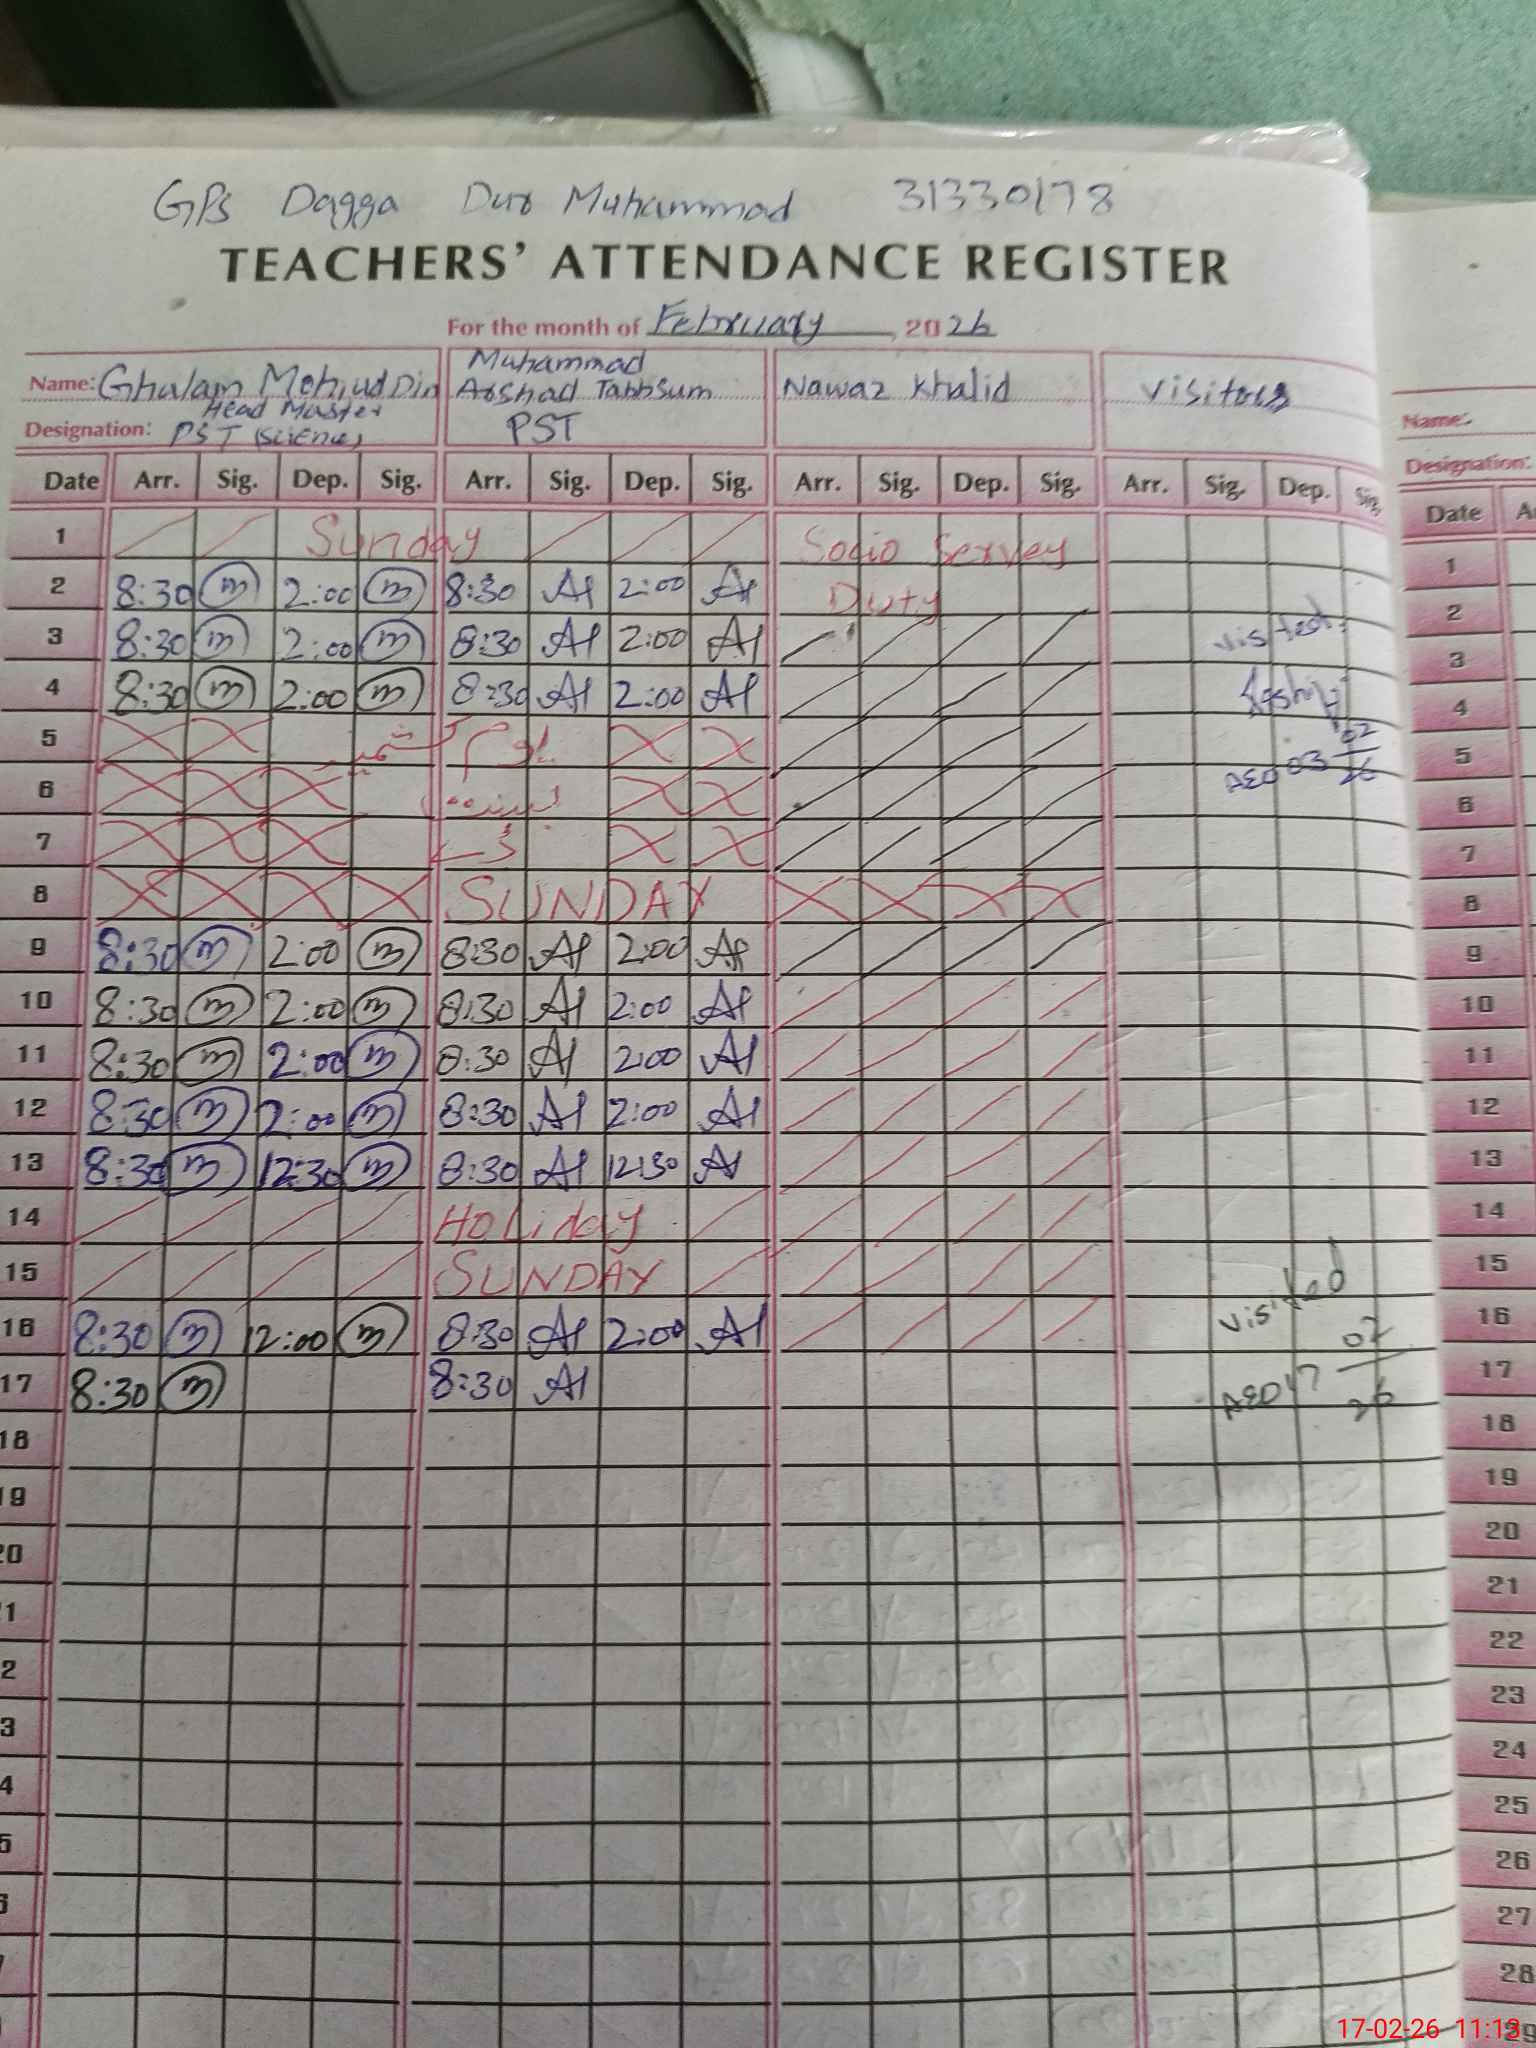 GPS Dagga Dur Muhammad 31330178
TEACHERS' ATTENDANCE REGISTER
For the month of February, 2026
Name: Ghulam Mohiuddin Muhammad Arshad Tabbsum Nawaz Khalid Visitors Name:
Head Master
Designation: PST (Science) PST Designation:
Date Arr. Sig. Dep. Sig. Arr. Sig. Dep. Sig. Arr. Sig. Dep. Sig. Arr. Sig. Dep. Sig. Date
1 Sunday Socio Servey 1
2 8:30 m 2:00 m 8:30 Al 2:00 Al Duty 2
3 8:30 m 2:00 m 8:30 Al 2:00 Al Visited 3
4 8:30 m 2:00 m 8:30 Al 2:00 Al 4
5 یوم کشمیر AEO 03 02 26 5
6 6
7 7
8 SUNDAY 8
9 8:30 m 2:00 m 8:30 Al 2:00 Al 9
10 8:30 m 2:00 m 8:30 Al 2:00 Al 10
11 8:30 m 2:00 m 8:30 Al 2:00 Al 11
12 8:30 m 2:00 m 8:30 Al 2:00 Al 12
13 8:30 m 12:30 m 8:30 Al 12:30 Al 13
14 Holiday 14
15 SUNDAY 15
16 8:30 m 12:00 m 8:30 Al 2:00 Al Visited 16
17 8:30 m 8:30 Al AEO 17 02 26 17
18 18
19 19
20 20
21 21
22 22
23 23
24 24
25 25
26 26
27 27
28 28
29
17-02-26 11:13